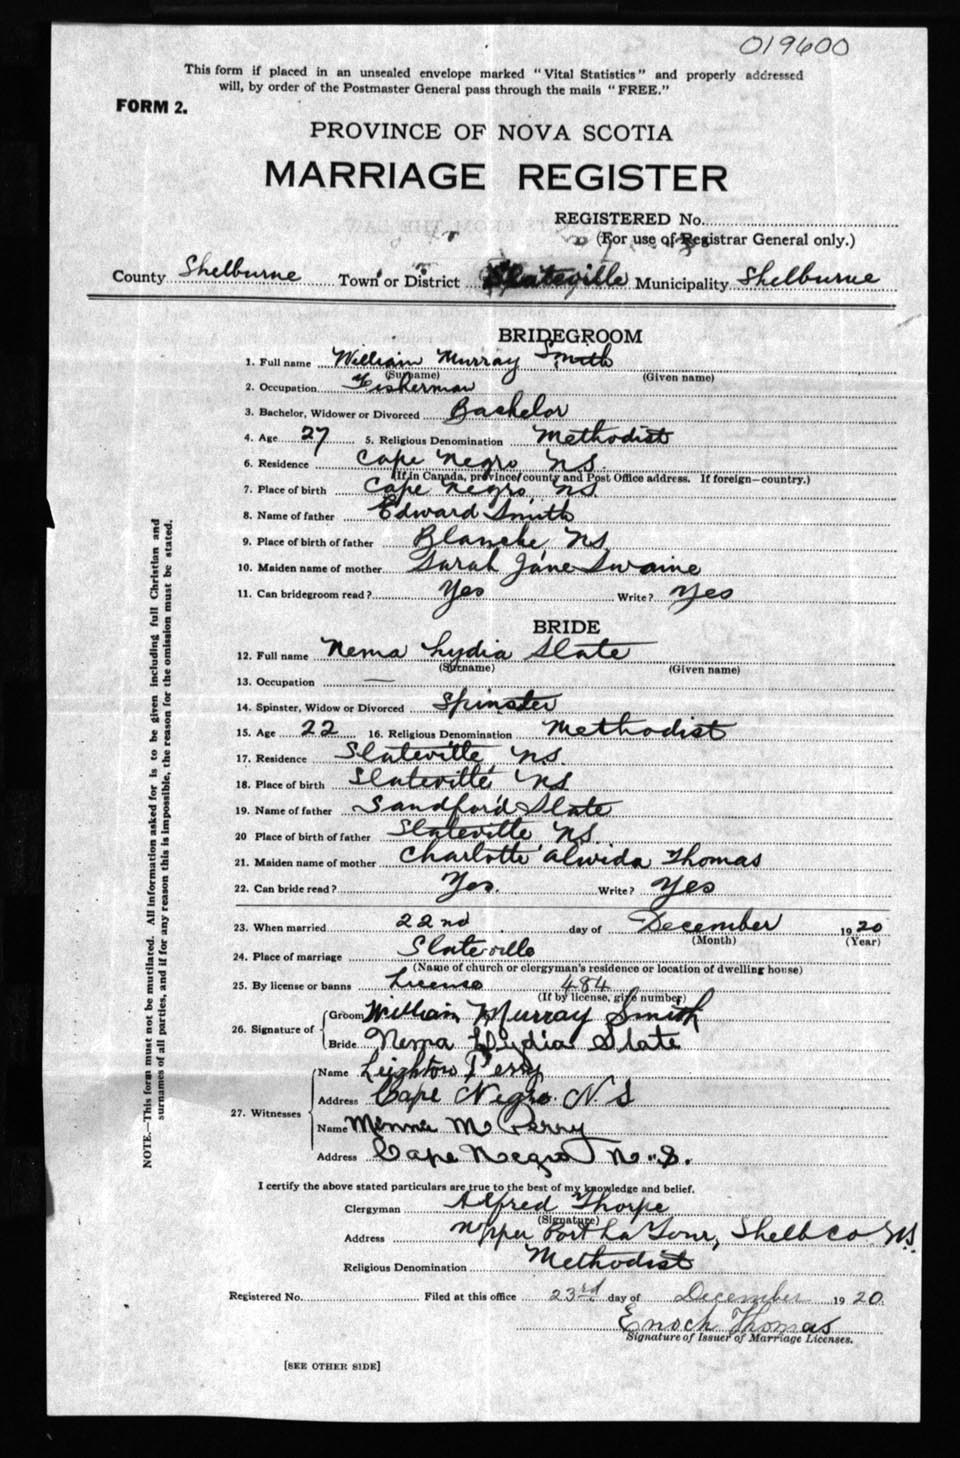 019600
This form if placed in an unsealed envelope marked "Vital Statistics" and properly addressed
will, by order of the Postmaster General pass through the mails "FREE."
FORM 2.
PROVINCE OF NOVA SCOTIA
MARRIAGE REGISTER
REGISTERED No.
(For use of Registrar General only.)
County Shelburne Town or District Slateville Municipality Shelburne
BRIDEGROOM
1. Full name William Murray Smith
(Surname) (Given name)
2. Occupation Fisherman
3. Bachelor, Widower or Divorced Bachelor
4. Age 27 5. Religious Denomination Methodist
6. Residence Cape Negro NS.
(If in Canada, province, county and Post Office address. If foreign—country.)
7. Place of birth Cape Negro, NS.
8. Name of father Edward Smith
9. Place of birth of father Blanche, NS
10. Maiden name of mother Sarah Jane Swaine
11. Can bridegroom read? Yes Write? Yes
BRIDE
12. Full name Nema Lydia Slate
(Surname) (Given name)
13. Occupation —
14. Spinster, Widow or Divorced Spinster
15. Age 22 16. Religious Denomination Methodist
17. Residence Slateville NS.
18. Place of birth Slateville NS
19. Name of father Sandford Slate
20 Place of birth of father Slateville NS.
21. Maiden name of mother Charlotte Alwida Thomas
22. Can bride read? Yes. Write? Yes
23. When married 22nd day of December 1920
(Month) (Year)
24. Place of marriage Slateville
(Name of church or clergyman's residence or location of dwelling house)
25. By license or banns License 484
(If by license, give number)
26. Signature of
Groom William Murray Smith
Bride Nema Lydia Slate
27. Witnesses
Name Leighton Perry
Address Cape Negro. N S
Name M Perry
Address Cape Negro N.S.
I certify the above stated particulars are true to the best of my knowledge and belief.
Clergyman Alfred Thorpe
(Signature)
Address Upper Port La Tour, Shelb Co NS.
Religious Denomination Methodist
Registered No. Filed at this office 23rd day of December 1920.
Enoch Thomas
Signature of Issuer of Marriage Licenses.
[SEE OTHER SIDE]
NOTE.—This form must not be mutilated. All information asked for is to be given including full Christian and
surnames of all parties, and if for any reason this is impossible, the reason for the omission must be stated.